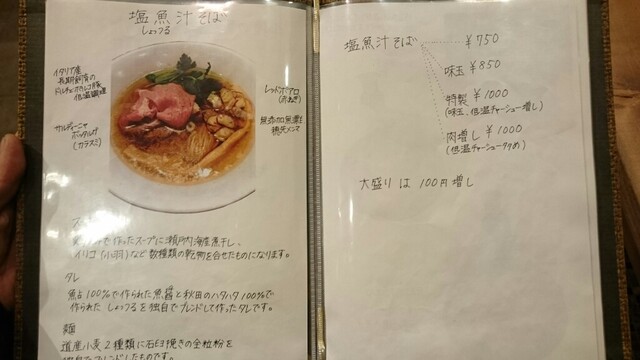 塩魚汁そば
しょっつる
イタリア産
長期飼育の
ドルチェポルコ豚
低温調理
サルディーニャ
ボッタルガ
(カラスミ)
レッドポアロ
(赤ねぎ)
無添加無漂白
穂先メンマ
で作ったスープに瀬戸内海産煮干し、
イリコ(小羽)など数種類の乾物を合せたものになります。
タレ
魚占100%で作られた魚醤と秋田のハタハタ100%で
作られた しょっつるを独自でブレンドして作ったタレです。
麺
道産小麦2種類に石臼挽きの全粒粉を
独自でブレンドしたものです。
塩魚汁そば ¥750
味玉 ¥850
特製 ¥1000
(味玉、低温チャーシュー増し)
肉増し ¥1000
(低温チャーシュー多め)
大盛りは 100円増し